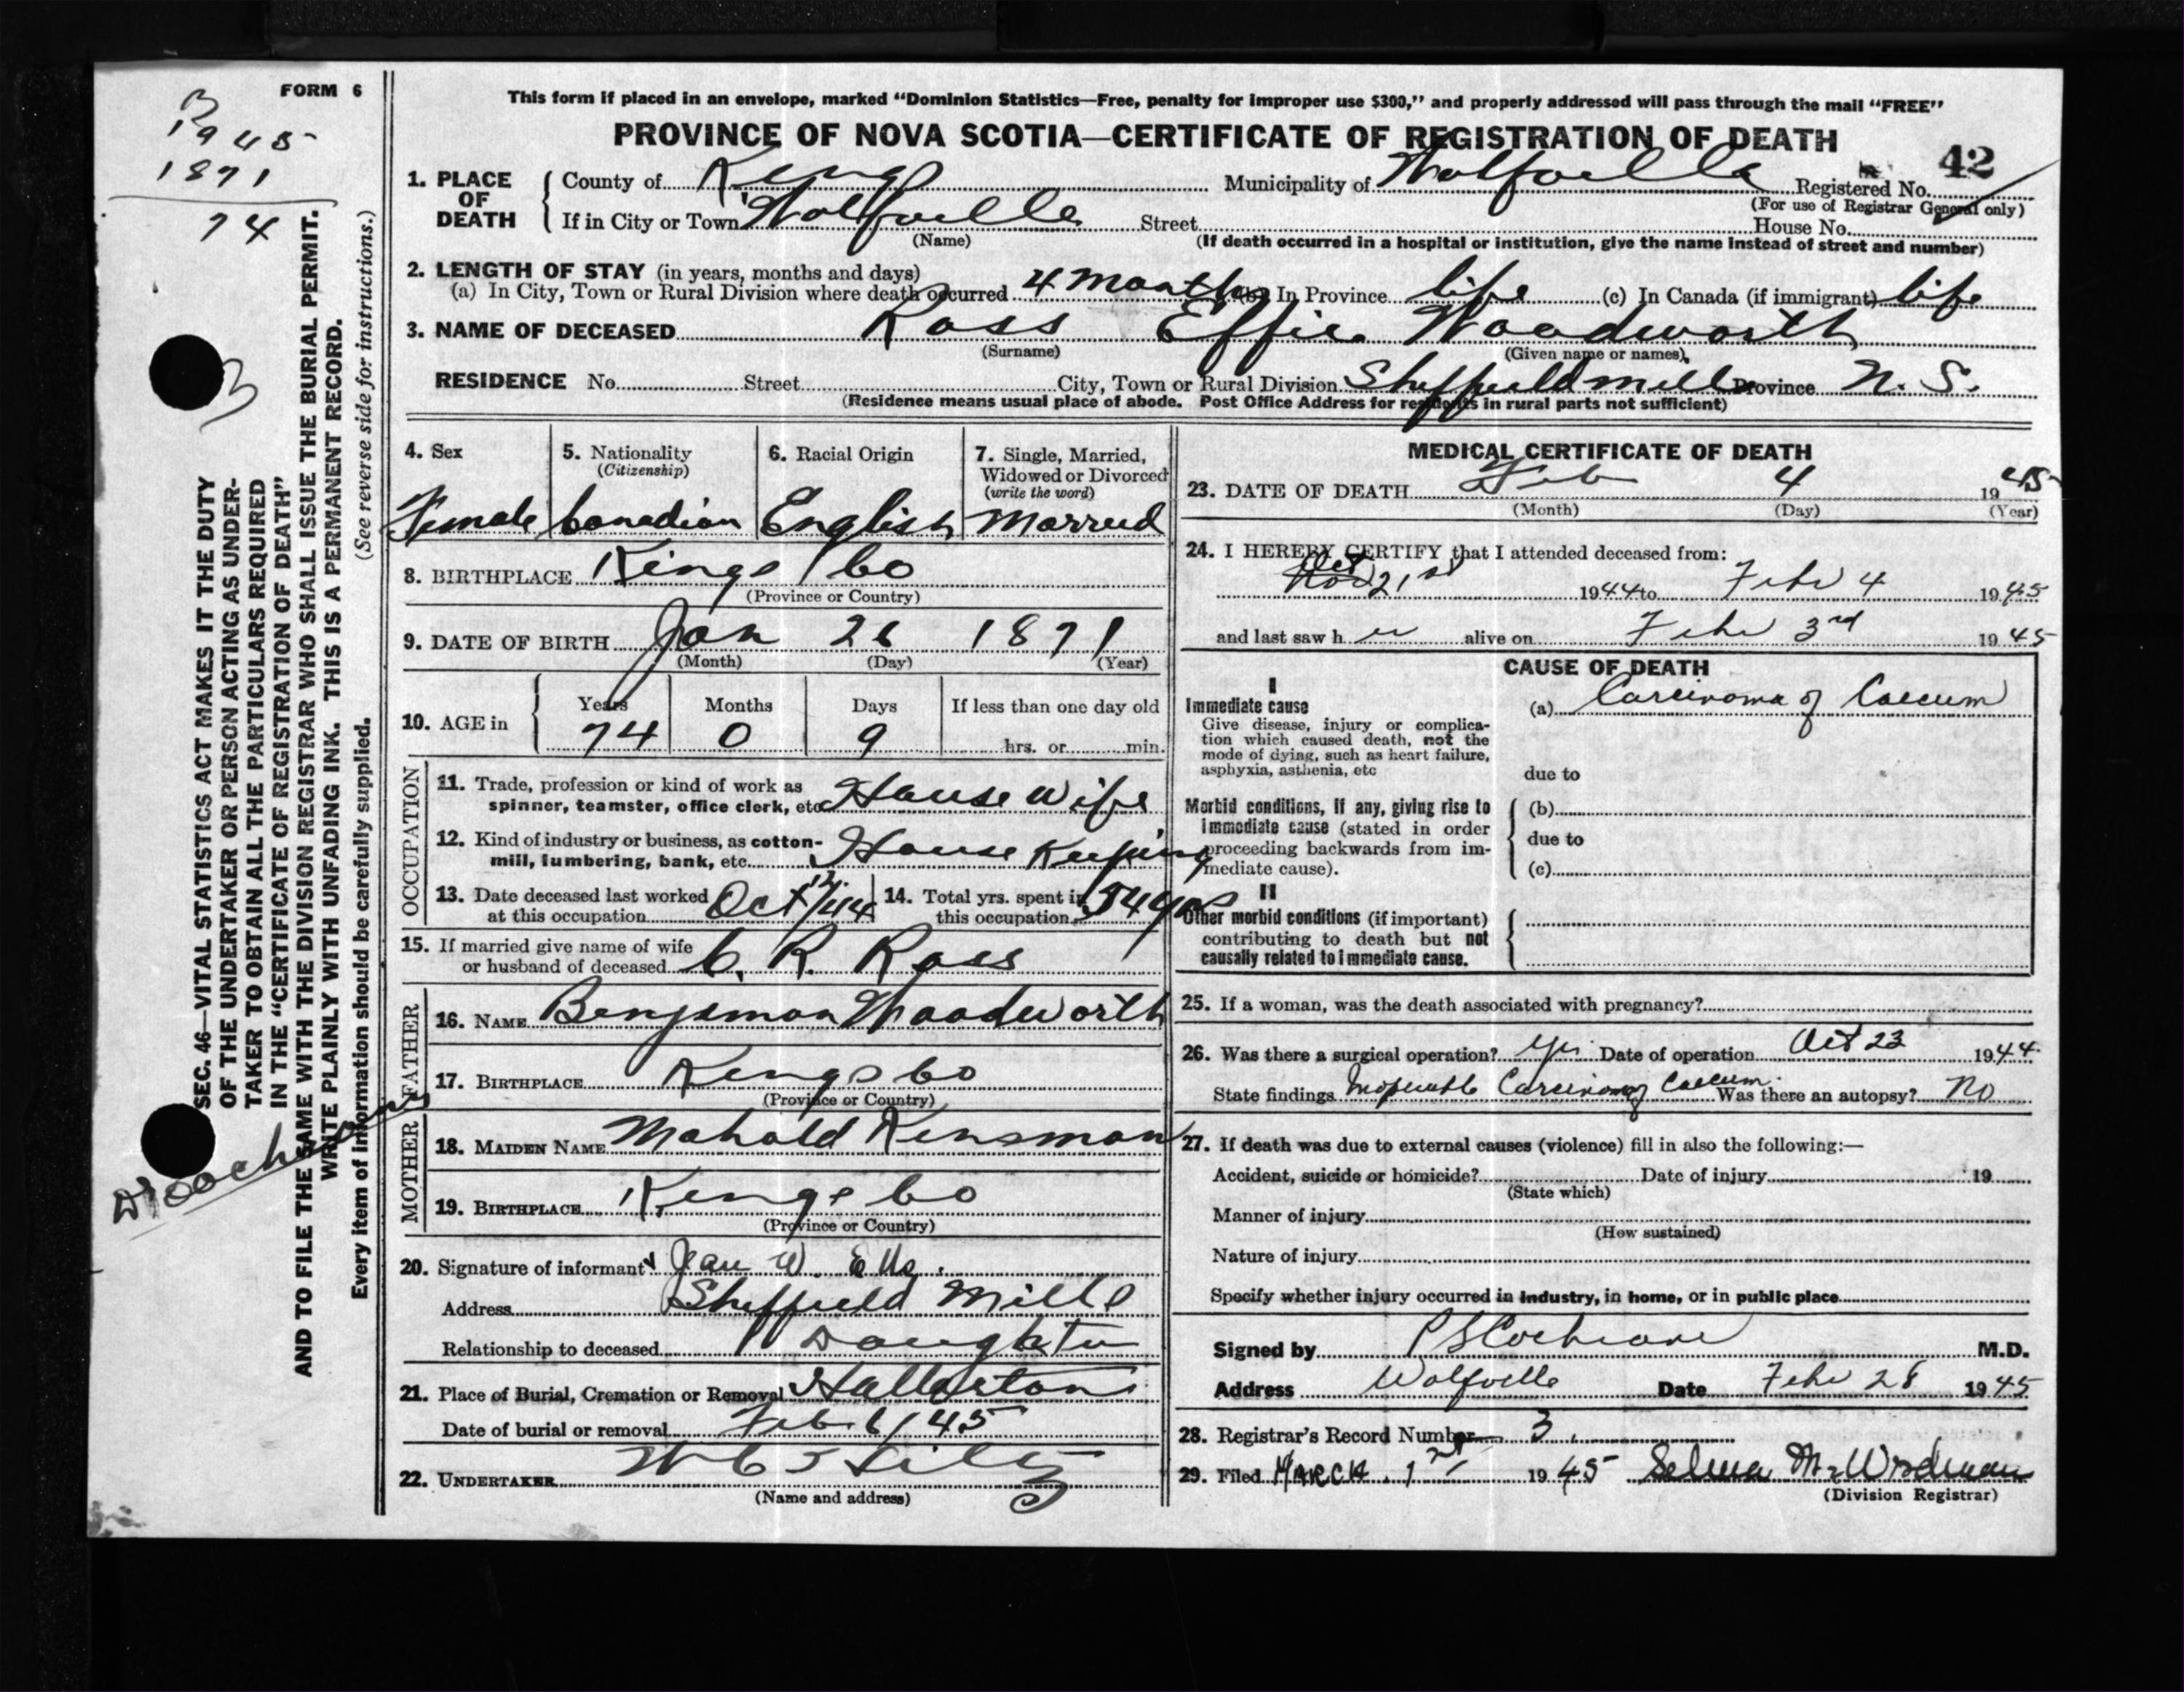 FORM 6
1945
1871
74
B
SEC. 46—VITAL STATISTICS ACT MAKES IT THE DUTY
OF THE UNDERTAKER OR PERSON ACTING AS UNDER-
TAKER TO OBTAIN ALL THE PARTICULARS REQUIRED
IN THE "CERTIFICATE OF REGISTRATION OF DEATH"
AND TO FILE THE SAME WITH THE DIVISION REGISTRAR WHO SHALL ISSUE THE BURIAL PERMIT.
WRITE PLAINLY WITH UNFADING INK. THIS IS A PERMANENT RECORD.
Every item of information should be carefully supplied. (See reverse side for instructions.)
This form if placed in an envelope, marked "Dominion Statistics—Free, penalty for improper use $300," and properly addressed will pass through the mail "FREE"
PROVINCE OF NOVA SCOTIA—CERTIFICATE OF REGISTRATION OF DEATH
42
1. PLACE OF DEATH County of Kings Municipality of Wolfville Registered No.
(For use of Registrar General only)
If in City or Town Wolfville Street House No.
(Name) (If death occurred in a hospital or institution, give the name instead of street and number)
2. LENGTH OF STAY (in years, months and days)
(a) In City, Town or Rural Division where death occurred 4 months (b) In Province life (c) In Canada (if immigrant) life
3. NAME OF DECEASED Ross Effie Woodworth
(Surname) (Given name or names)
RESIDENCE No. Street City, Town or Rural Division Sheffield Mills Province N. S.
(Residence means usual place of abode. Post Office Address for residents in rural parts not sufficient)
4. Sex 5. Nationality (Citizenship) 6. Racial Origin 7. Single, Married, Widowed or Divorced (write the word)
Female Canadian English Married
8. BIRTHPLACE Kings Co
(Province or Country)
9. DATE OF BIRTH Jan 26 1871
(Month) (Day) (Year)
10. AGE in Years Months Days If less than one day old
74 0 9 hrs. or min.
OCCUPATION
11. Trade, profession or kind of work as
spinner, teamster, office clerk, etc House Wife
12. Kind of industry or business, as cotton-
mill, lumbering, bank, etc House Keeping
13. Date deceased last worked at this occupation Oct 12/44 14. Total yrs. spent in this occupation 54 yrs
15. If married give name of wife
or husband of deceased C. R. Ross
FATHER
16. NAME Benjamon Woodworth
17. BIRTHPLACE Kings Co
(Province or Country)
MOTHER
18. MAIDEN NAME Mahald Kinsman
19. BIRTHPLACE Kings Co
(Province or Country)
20. Signature of informant Jean W. Ells.
Address Sheffield Mills
Relationship to deceased Daughter
21. Place of Burial, Cremation or Removal
Date of burial or removal Feb. 6/45
22. UNDERTAKER
(Name and address)
MEDICAL CERTIFICATE OF DEATH
23. DATE OF DEATH Feb 4 1945
(Month) (Day) (Year)
24. I HEREBY CERTIFY that I attended deceased from:
Oct 21st 1944 to Feb 4 1945
and last saw h er alive on Feb 3rd 1945
CAUSE OF DEATH
I
Immediate cause
Give disease, injury or complica-
tion which caused death, not the
mode of dying, such as heart failure,
asphyxia, asthenia, etc
(a) Carcinoma of Caecum
due to
Morbid conditions, if any, giving rise to
immediate cause (stated in order
proceeding backwards from im-
mediate cause).
(b)
due to
(c)
II
Other morbid conditions (if important)
contributing to death but not
causally related to immediate cause.
25. If a woman, was the death associated with pregnancy?
26. Was there a surgical operation? yes Date of operation Oct 23 1944
State findings Inoperable Carcinoma of Caecum. Was there an autopsy? No
27. If death was due to external causes (violence) fill in also the following:—
Accident, suicide or homicide? Date of injury 19
(State which)
Manner of injury
(How sustained)
Nature of injury
Specify whether injury occurred in industry, in home, or in public place
Signed by P S Cochrane M.D.
Address Wolfville Date Feb 28 1945
28. Registrar's Record Number 3.
29. Filed MARCH. 1st 1945 Selma
(Division Registrar)